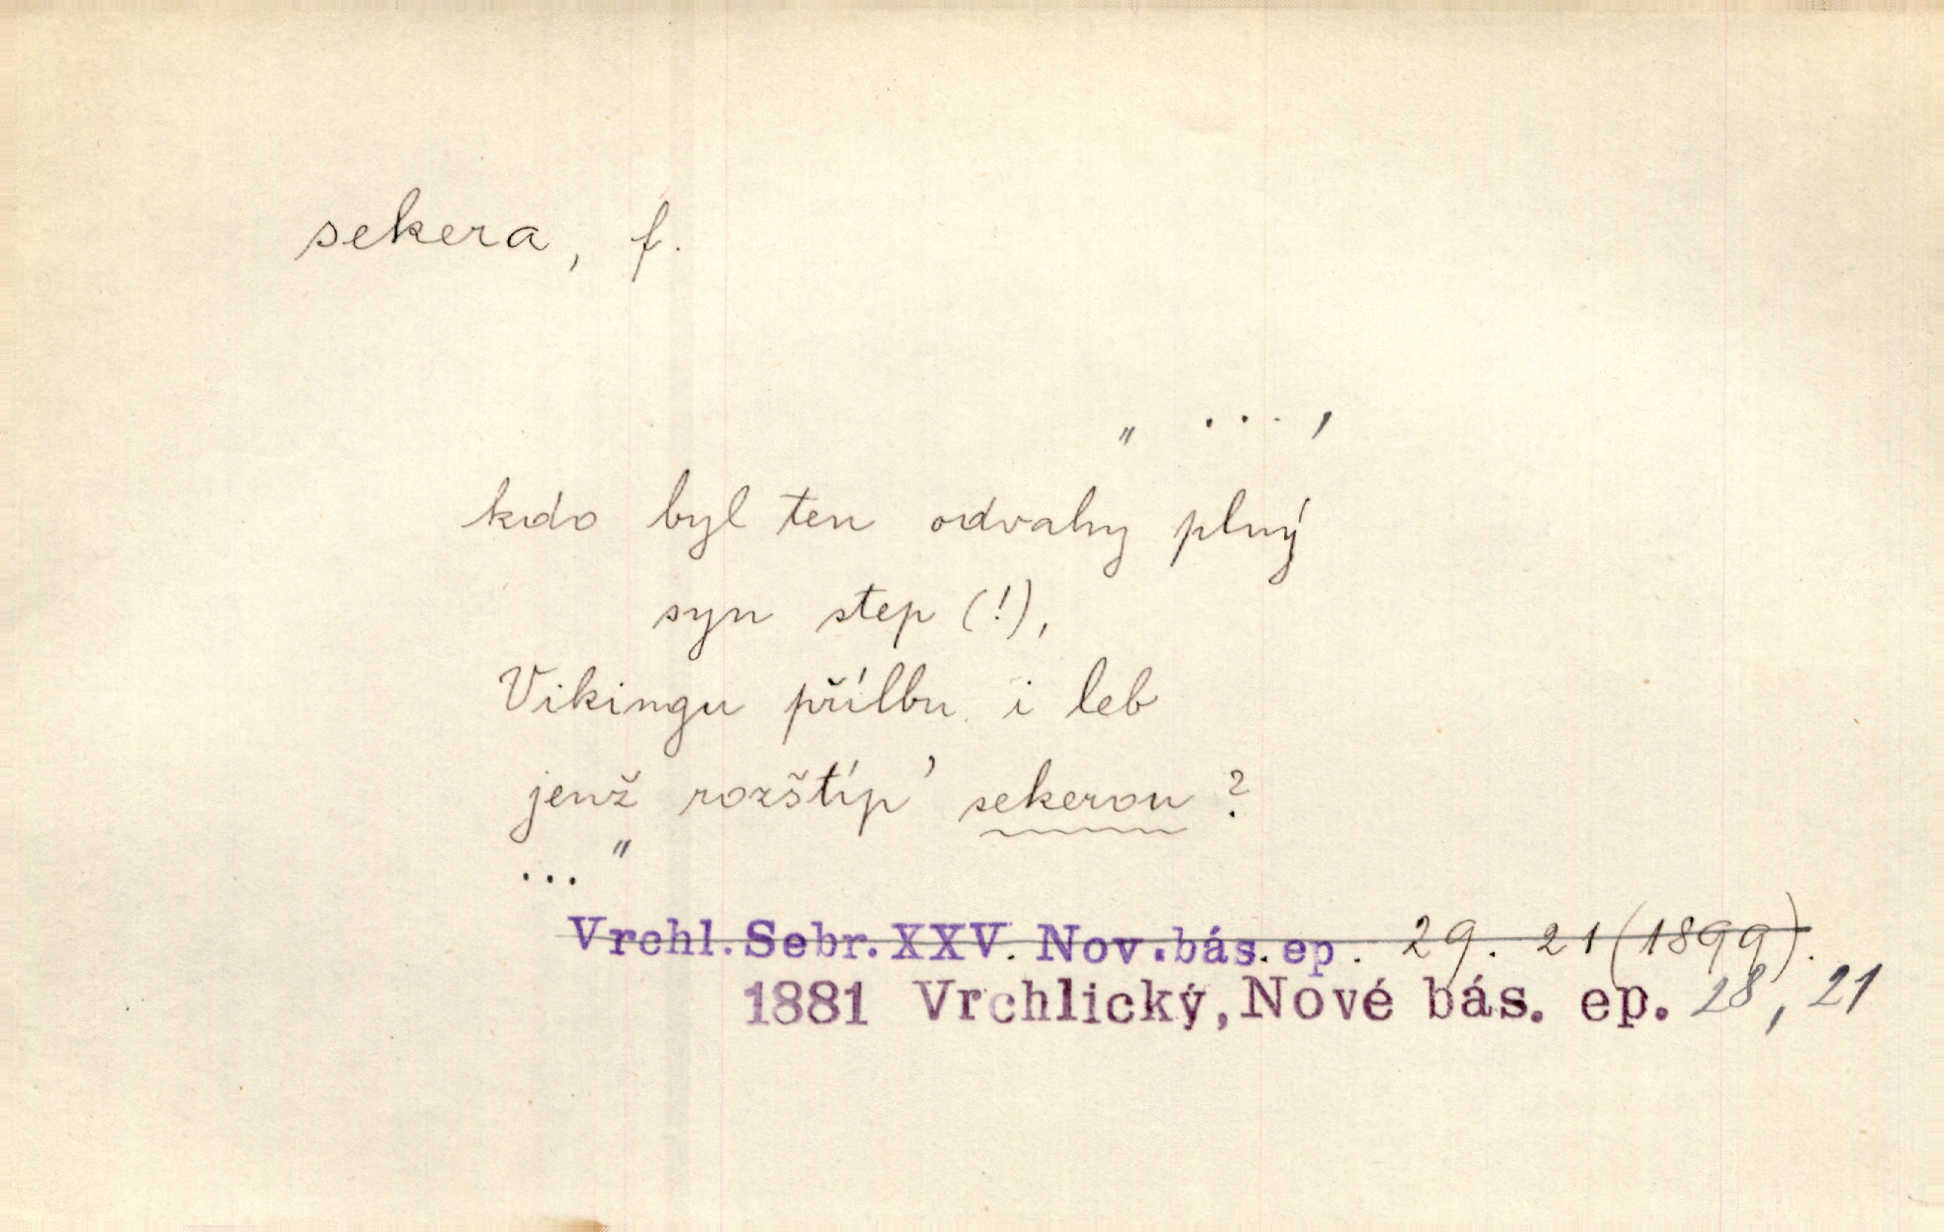 sekera, f.
„ ...,
kdo byl ten odvahy plný
syn step (!),
Vikingu přílbu i leb
jenž rozštíp' sekerou?
..."
Vrchl. Sebr. XXV. Nov. bás. ep. 29. 21 (1899).
1881 Vrchlický, Nové bás. ep. 28, 21